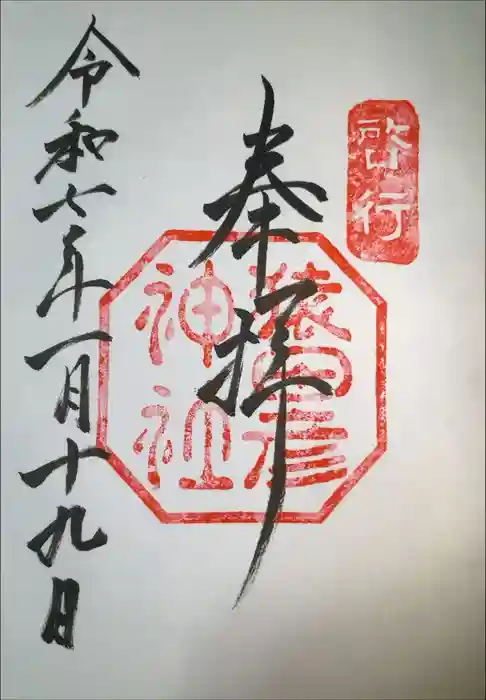 啓行
奉拝
猿田彦
神社
令和七年一月十九日